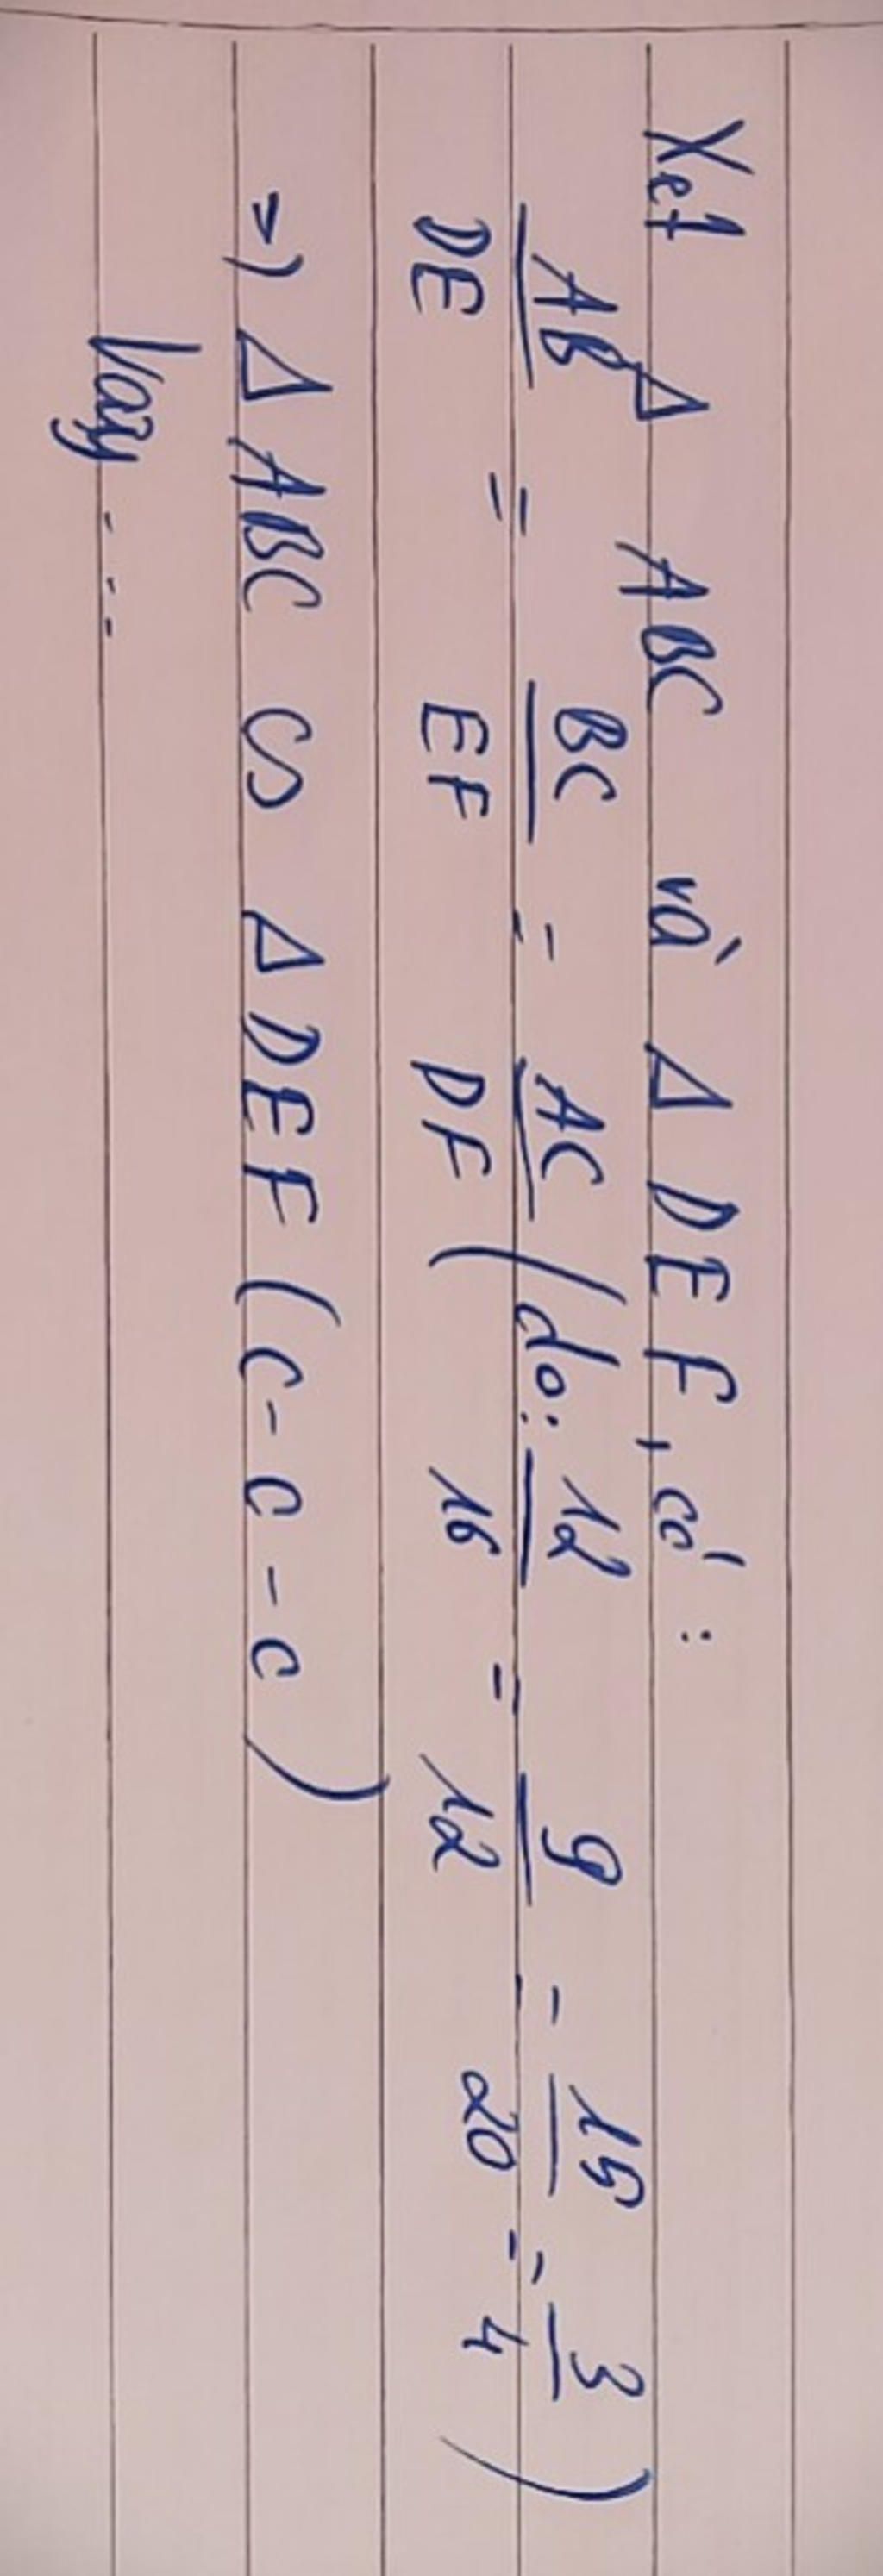 Xét Δ ABC và Δ DEF, có:
AB/DE = BC/EF = AC/DF (do: 12/16 = 9/12 = 15/20 = 3/4)
=) Δ ABC ∽ Δ DEF (c-c-c)
Vậy ...